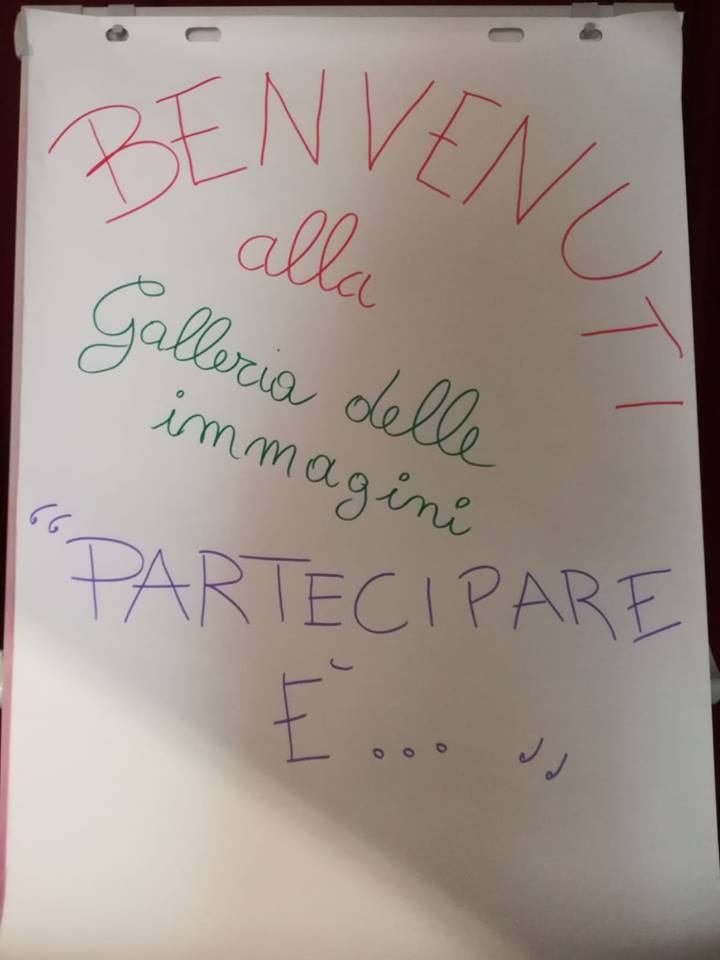 BENVENUTI
alla
Galleria delle
immagini
“PARTECIPARE
È... „